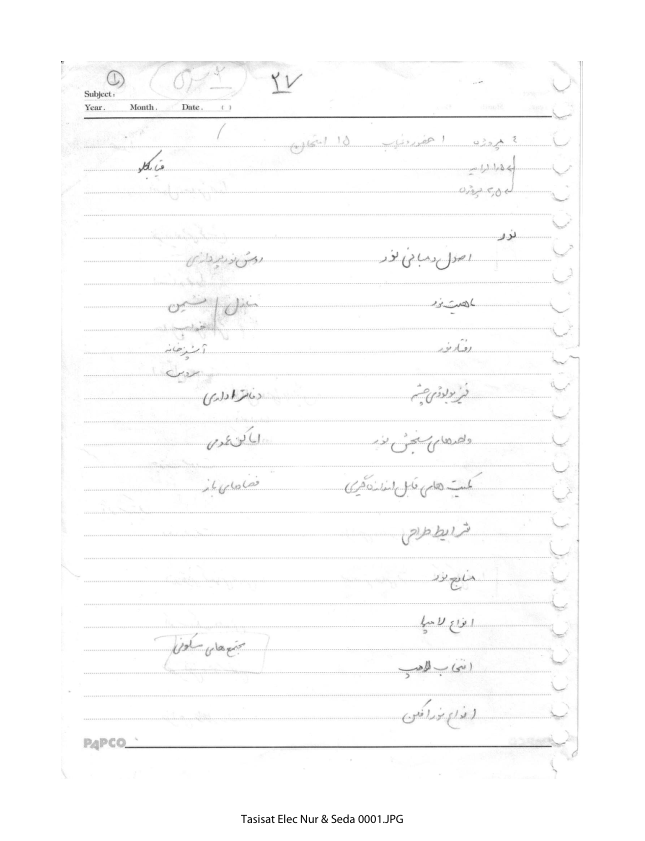 ① ۲۷
Subject:
Year. Month. Date. ( )
۴ پروژه ۱ حضور و غیاب ۱۵ امتحان
۲٫۵ پروژه
نور
اصول و مبانی نور روش نورپردازی
ماهیت نور منازل / نشیمن
خواب
رفتار نور آشپزخانه
فیزیولوژی چشم دفاتر اداری
واحدهای سنجش نور اماکن عمومی
کمیت های قابل اندازه گیری فضاهای باز
شرایط طراحی
منابع نور
انواع لامپ
مجتمع های مسکونی
انتخاب لامپ
انواع نورافکن
PAPCO
Tasisat Elec Nur & Seda 0001.JPG